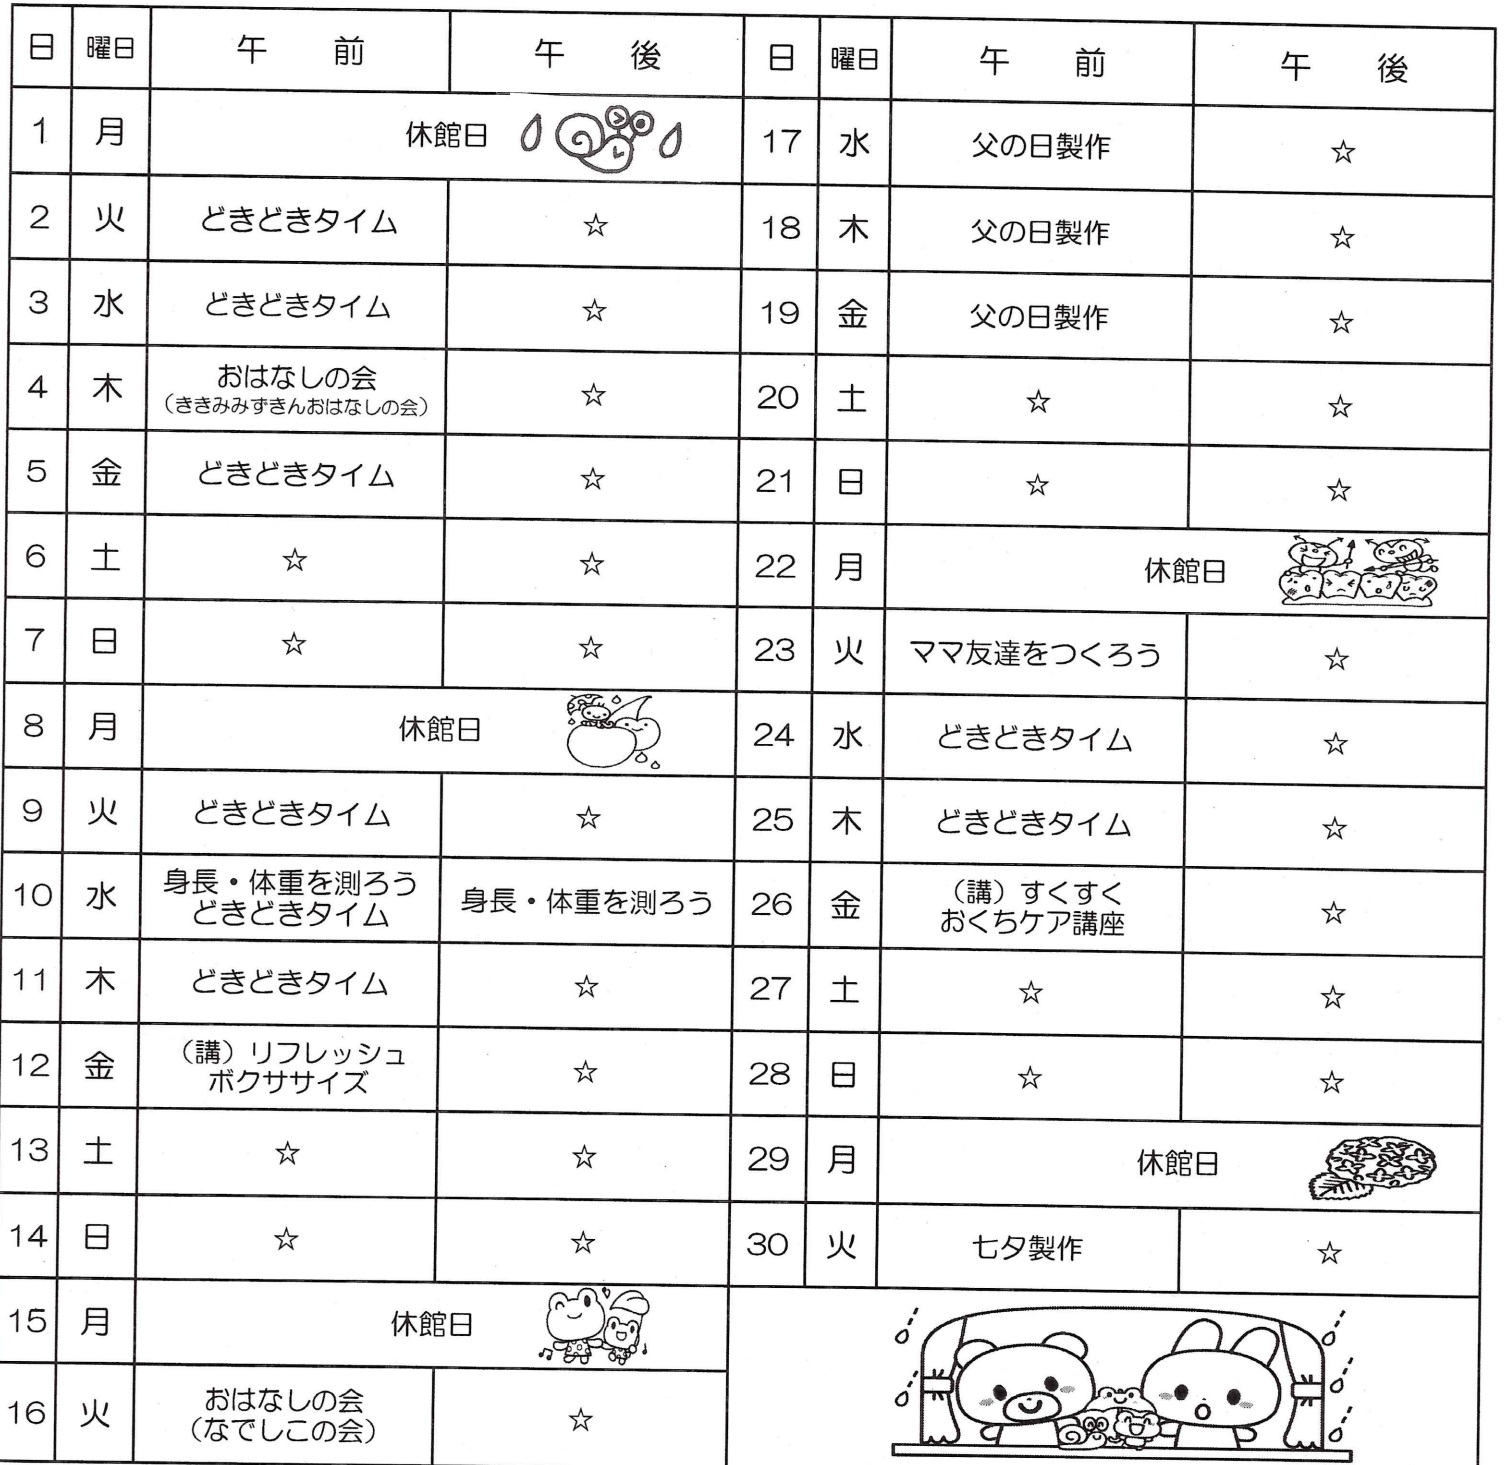 日 曜日 午 前 午 後
1 月 休館日
2 火 どきどきタイム ☆
3 水 どきどきタイム ☆
4 木 おはなしの会 ☆
（ききみみずきんおはなしの会）
5 金 どきどきタイム ☆
6 土 ☆ ☆
7 日 ☆ ☆
8 月 休館日
9 火 どきどきタイム ☆
10 水 身長・体重を測ろう 身長・体重を測ろう
どきどきタイム
11 木 どきどきタイム ☆
12 金 （講）リフレッシュ ☆
ボクササイズ
13 土 ☆ ☆
14 日 ☆ ☆
15 月 休館日
16 火 おはなしの会 ☆
（なでしこの会）
日 曜日 午 前 午 後
17 水 父の日製作 ☆
18 木 父の日製作 ☆
19 金 父の日製作 ☆
20 土 ☆ ☆
21 日 ☆ ☆
22 月 休館日
23 火 ママ友達をつくろう ☆
24 水 どきどきタイム ☆
25 木 どきどきタイム ☆
26 金 （講）すくすく ☆
おくちケア講座
27 土 ☆ ☆
28 日 ☆ ☆
29 月 休館日
30 火 七夕製作 ☆